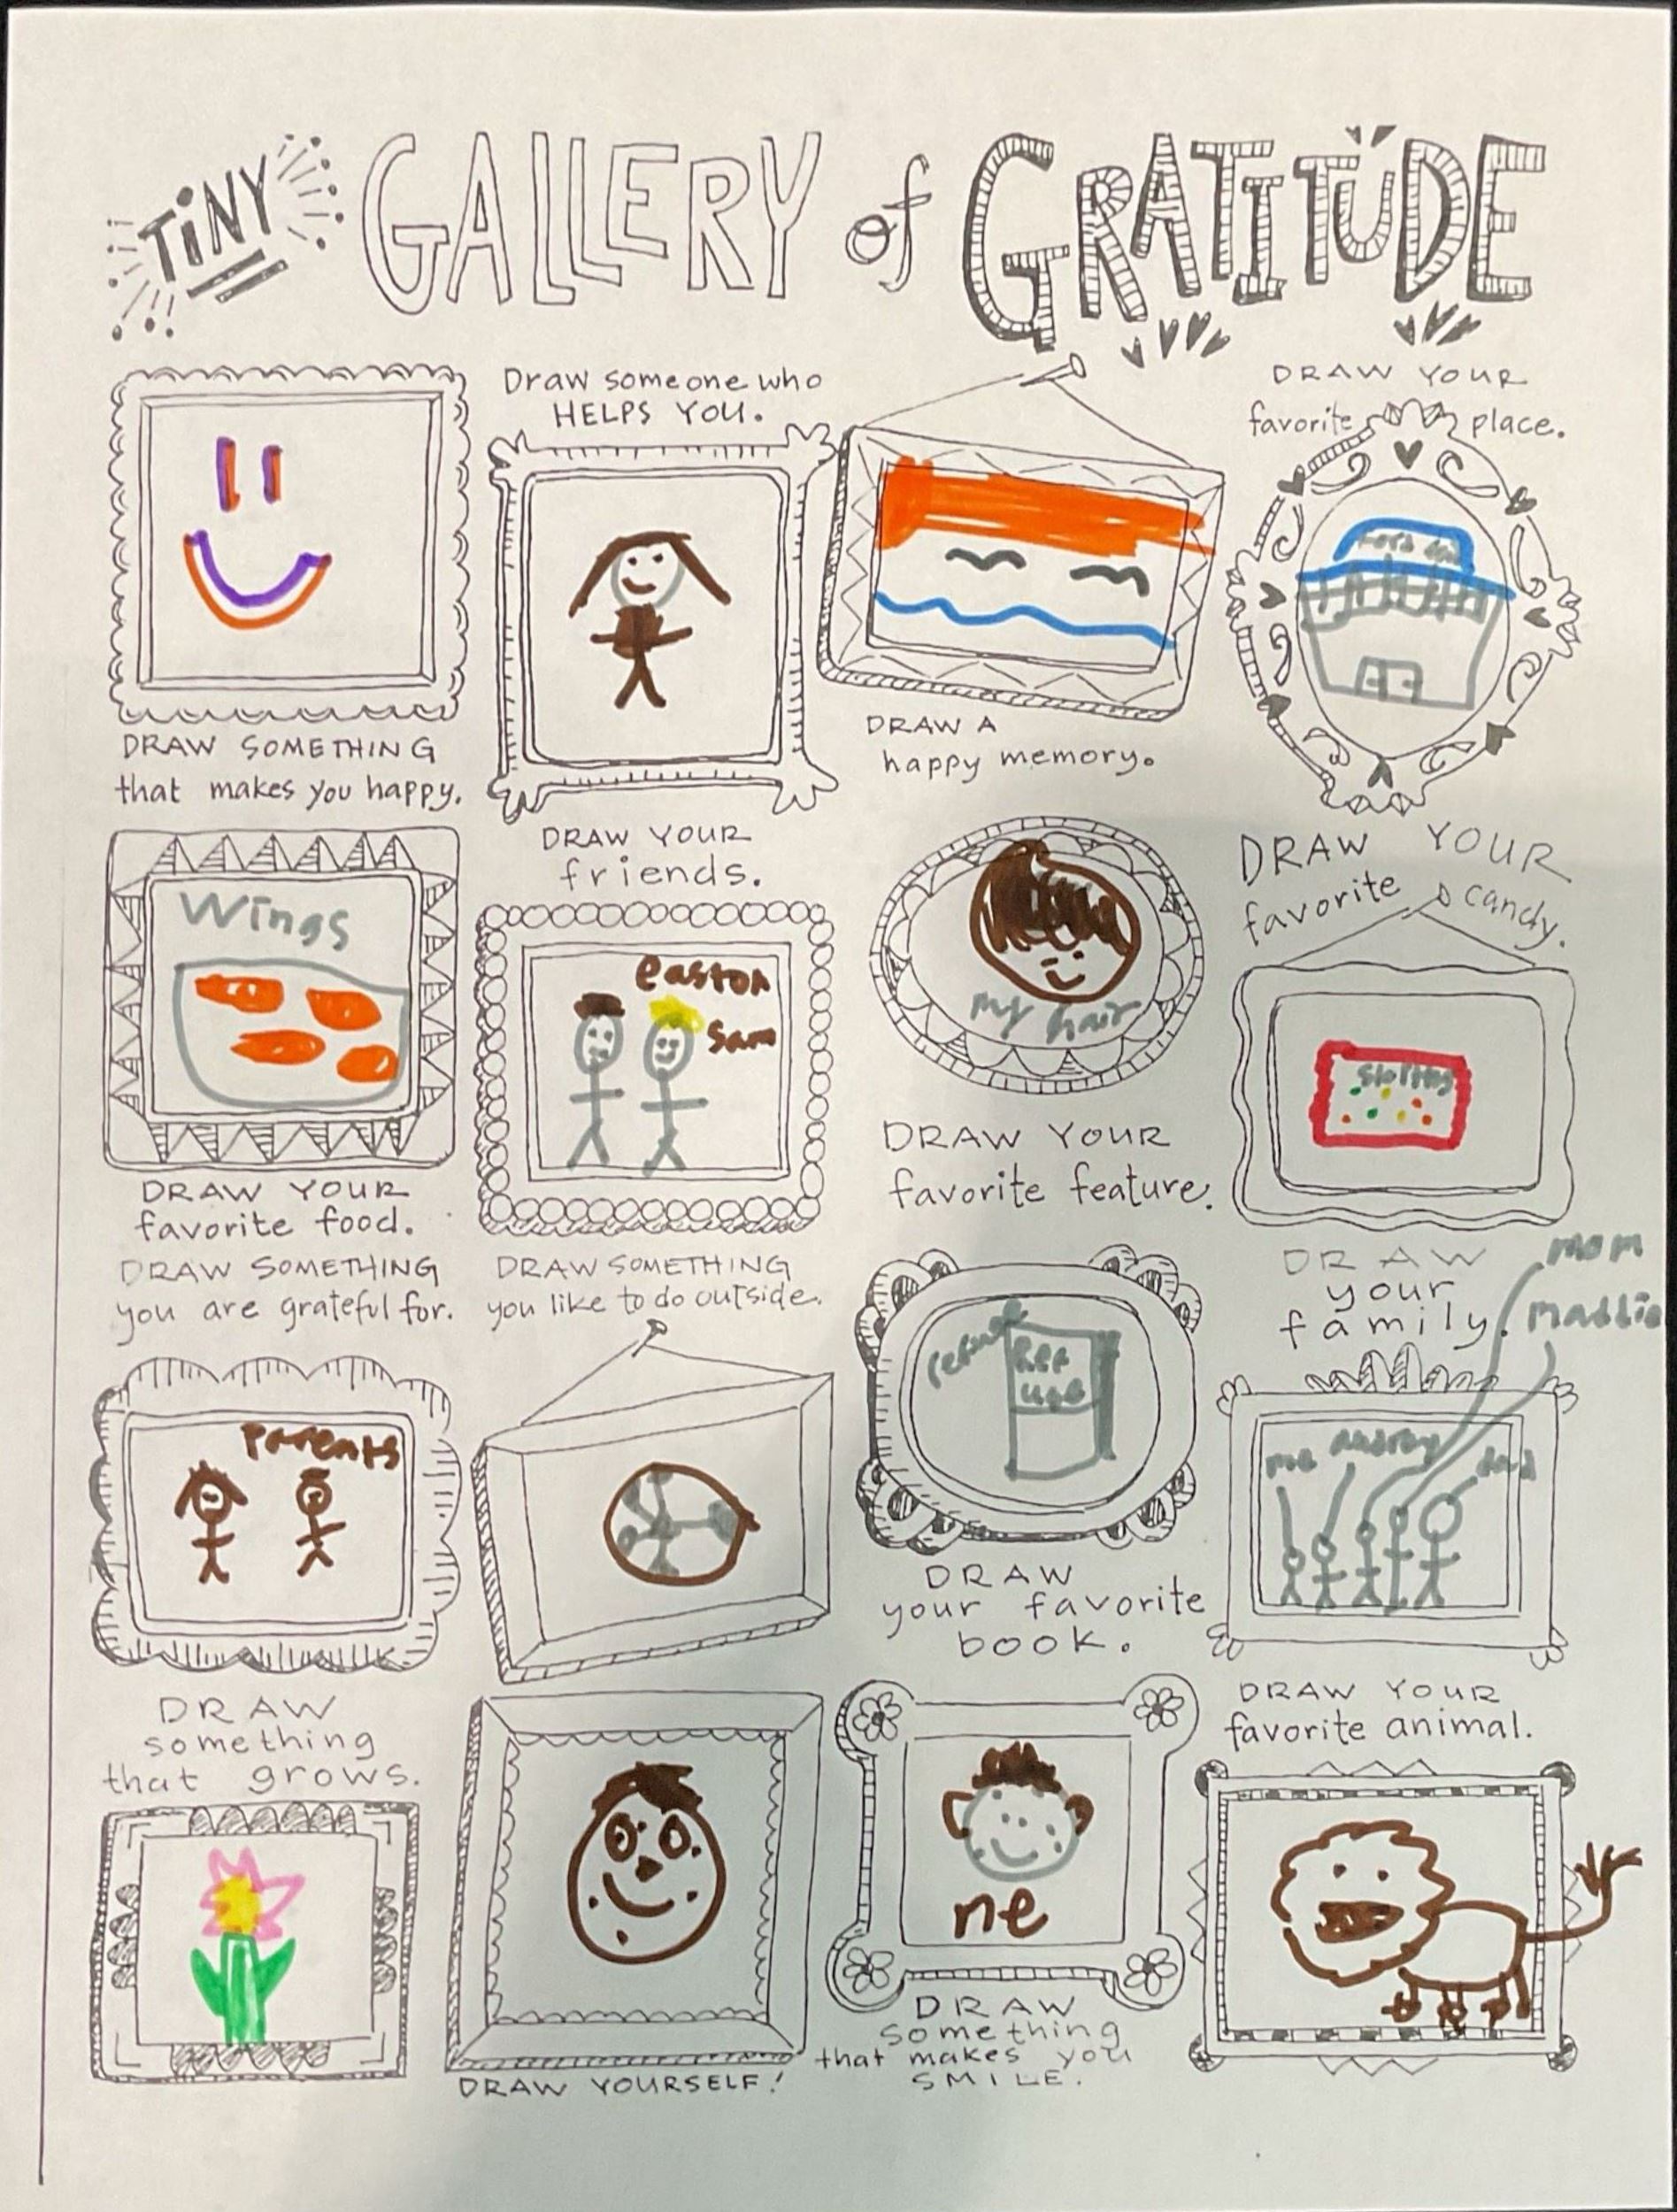 TINY GALLERY of GRATITUDE
DRAW SOMETHING
that makes you happy.
Draw someone who
HELPS YOU.
DRAW A
happy memory.
DRAW YOUR
favorite place.
Wings
DRAW YOUR
favorite food.
DRAW YOUR
friends.
easton
sam
my hair
DRAW YOUR
favorite feature.
DRAW YOUR
favorite candy.
DRAW SOMETHING
you are grateful for.
Parents
DRAW SOMETHING
you like to do outside.
Ref
uge
DRAW
your favorite
book.
DRAW
your
family.
mom
maddie
me
dad
DRAW
something
that grows.
DRAW YOURSELF!
me
DRAW
something
that makes you
SMILE.
DRAW YOUR
favorite animal.